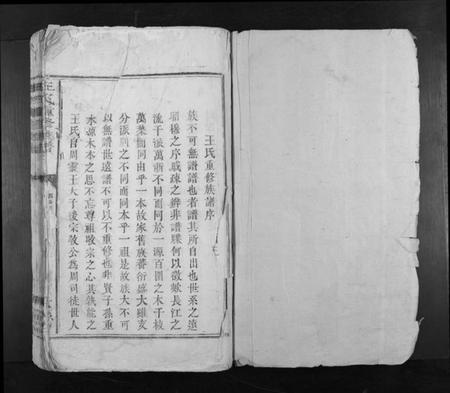 王氏重修族譜序
族不可無譜譜也者譜其所自出也世系之遠
昭穆之序戚疎之辨非譜牒何以徵歟長江之
流千派萬派不同而同於一源百圍之木千枝
萬葉不同而同由乎一本故家舊族蕃衍盛大雖支
分派別之不同而同本乎一祖是故族大不可
以無譜世遠譜不可以不重修也非賢子孫重
水源木本之思不忘尊祖敬宗之心其孰能之
王氏自周靈王太子後宗敬公為周司徒世人
王氏重修族譜